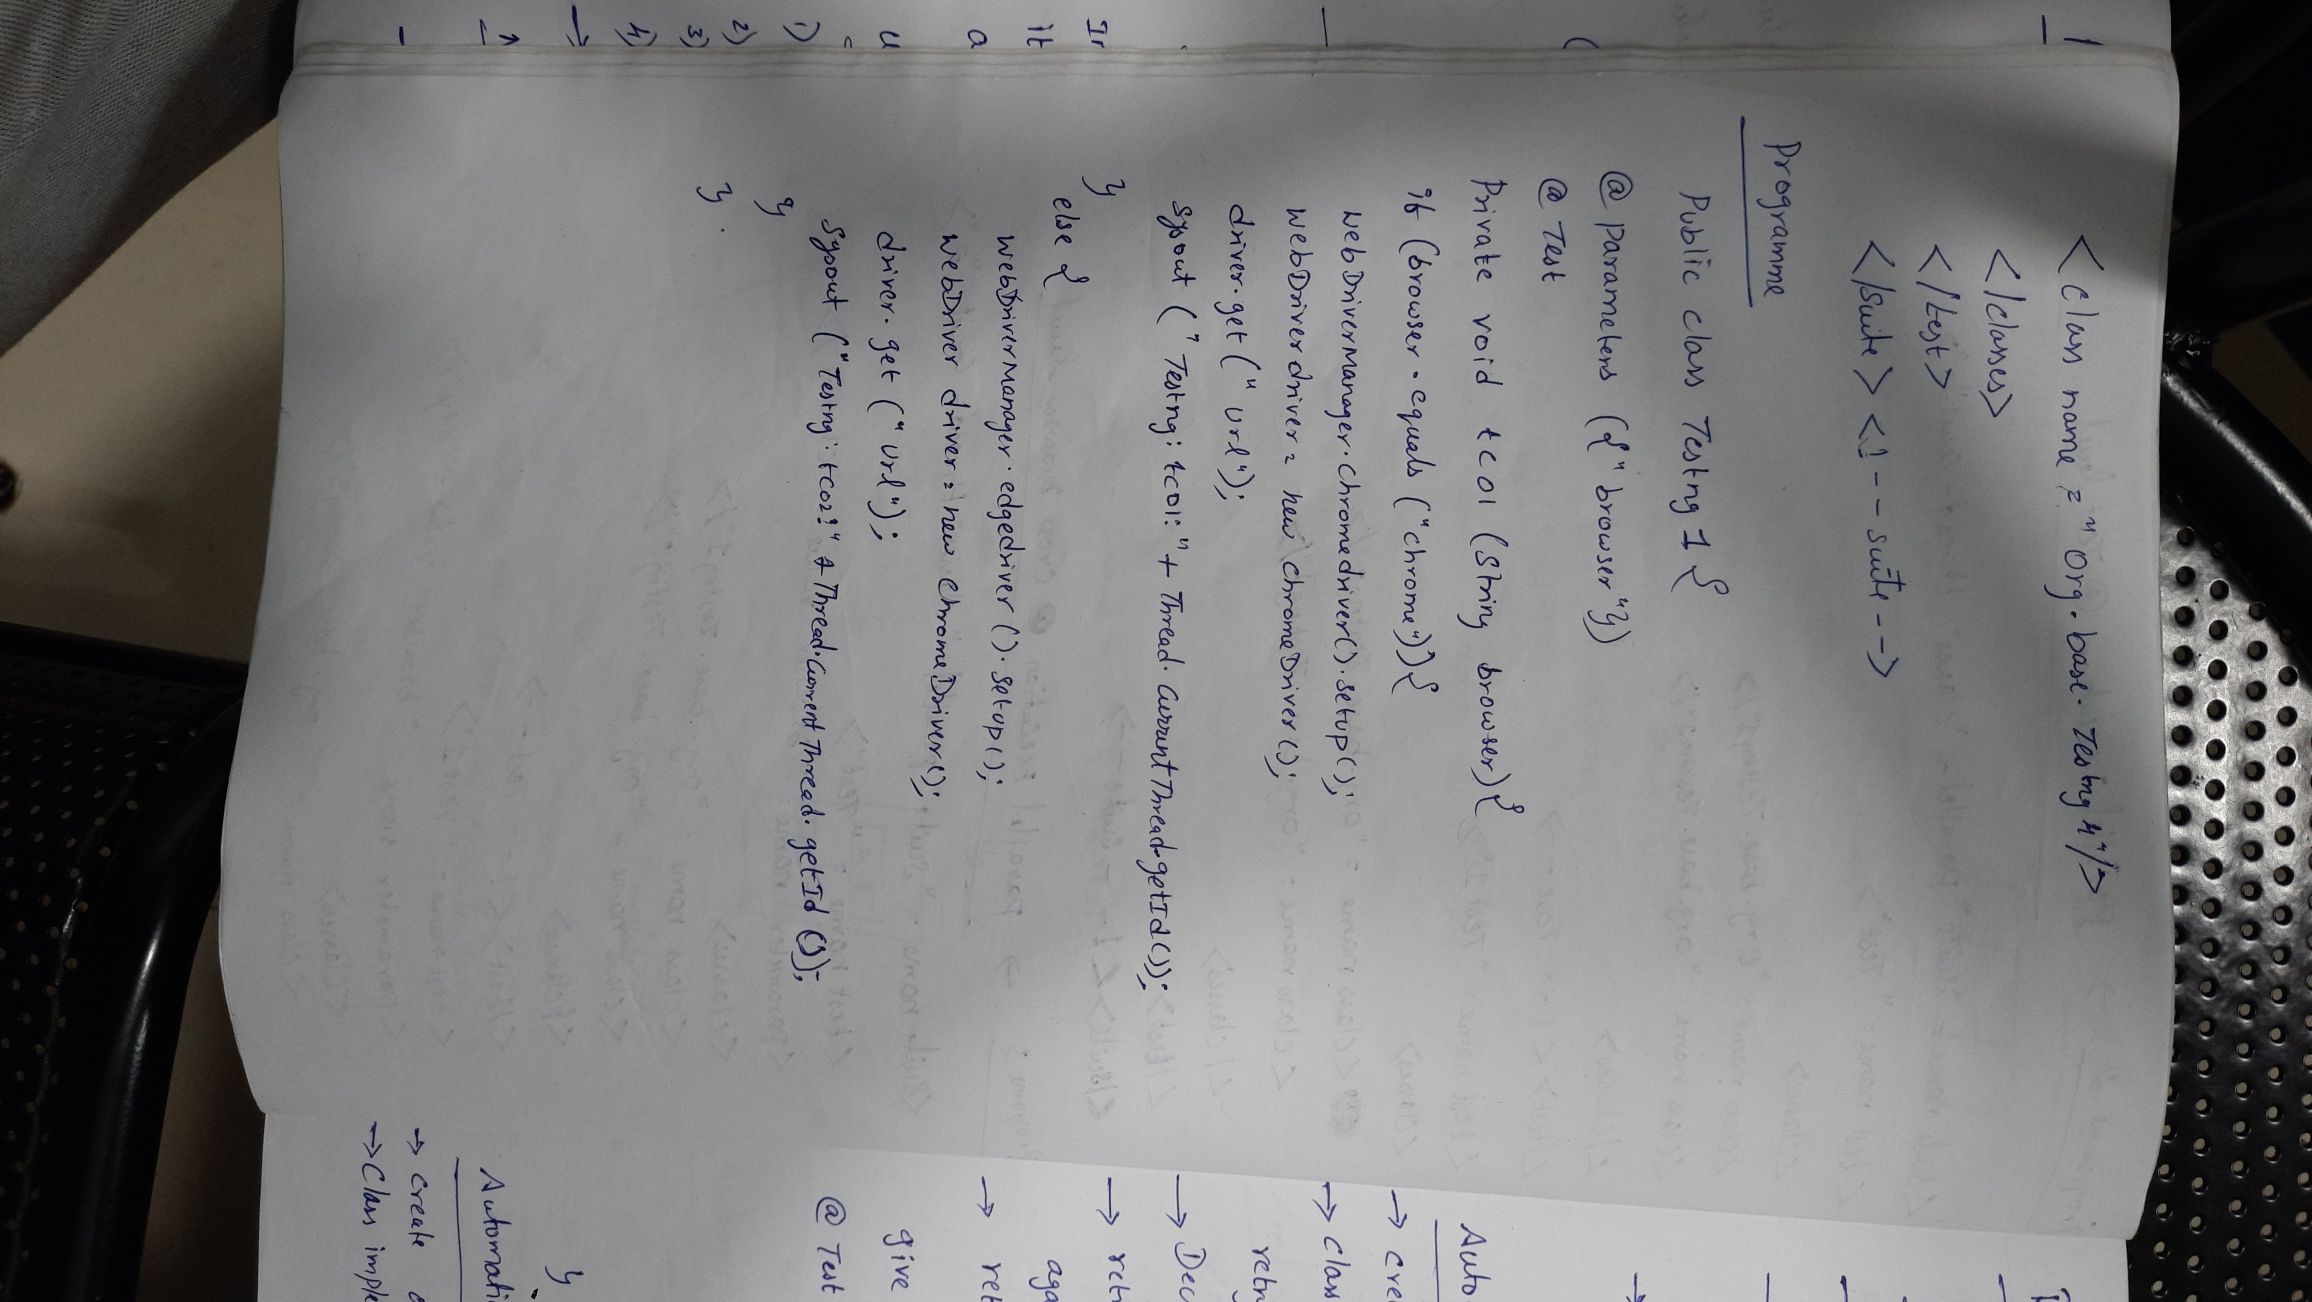 <class name = "Org.base.Testng4"/>
</classes>
</test>
</suite> <!--suite-->
Programme
Public class Testng1 {
@parameters ({"browser"})
@Test
Private void tc01 (String browser) {
if (browser.equals ("chrome")) {
WebDriverManager.chromedriver().setup();
WebDriver driver = new chromeDriver();
driver.get ("url");
sysout ("Testng: tc01:" + Thread.currentThread.getId());
}
else {
WebDriverManager.edgedriver().setup();
WebDriver driver = new chromeDriver();
driver.get ("url");
sysout ("Testng: tc02:" + Thread.currentThread.getId());
}
}
Auto
→ cre
→ clas
retr
→ Dec
→ retr
aga
→ ret
give
@Test
}
Automati
→ create
→ Class imple
In
It
a
u
1)
2)
3)
4)